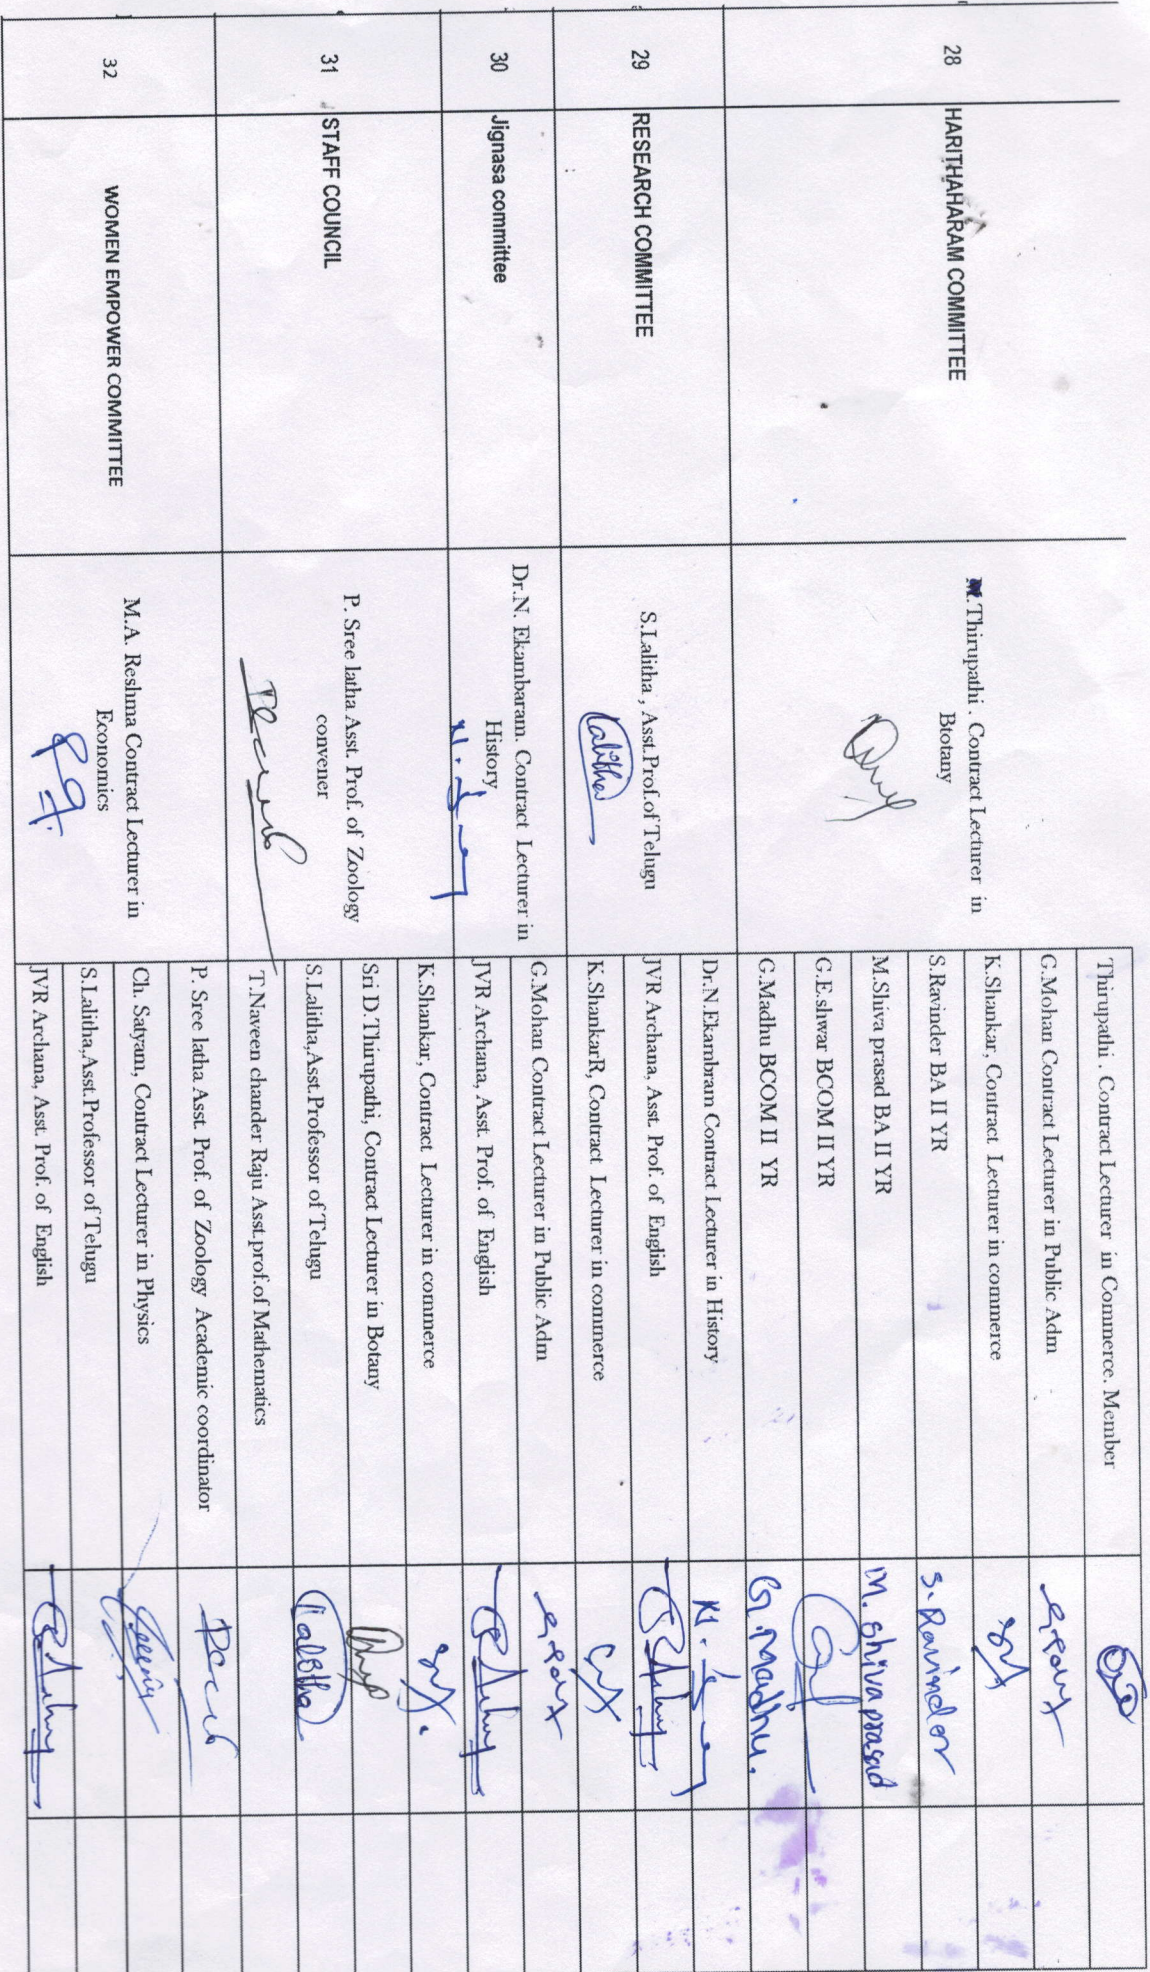 28
HARITHAHARAM COMMITTEE
M.Thirupathi . Contract Lecturer in
Btotany
Thirupathi . Contract Lecturer in Commerce. Member
G.Mohan Contract Lecturer in Public Adm
K.Shankar, Contract Lecturer in commerce
S.Ravinder BA II YR
S. Ravinder
M.Shiva prasad BA II YR
M. Shiva prasad
G.E.shwar BCOM II YR
G.Madhu BCOM II YR
G. Madhu.
29
RESEARCH COMMITTEE
S.Lalitha , Asst.Prof.of Telugu
Lalitha
Dr.N.Ekambram Contract Lecturer in History
JVR Archana, Asst. Prof. of English
K.ShankarR, Contract Lecturer in commerce
30
Jignasa committee
Dr.N. Ekambaram. Contract Lecturer in
History
G.Mohan Contract Lecturer in Public Adm
JVR Archana, Asst. Prof. of English
31
STAFF COUNCIL
P. Sree latha Asst. Prof. of Zoology
convener
K.Shankar, Contract Lecturer in commerce
Sri D.Thirupathi, Contract Lecturer in Botany
S.Lalitha,Asst.Professor of Telugu
Lalitha
T.Naveen chander Raju Asst.prof.of Mathematics
32
WOMEN EMPOWER COMMITTEE
M.A. Reshma Contract Lecturer in
Economics
P. Sree latha Asst. Prof. of Zoology Academic coordinator
Ch. Satyam, Contract Lecturer in Physics
S.Lalitha,Asst.Professor of Telugu
JVR Archana, Asst. Prof. of English